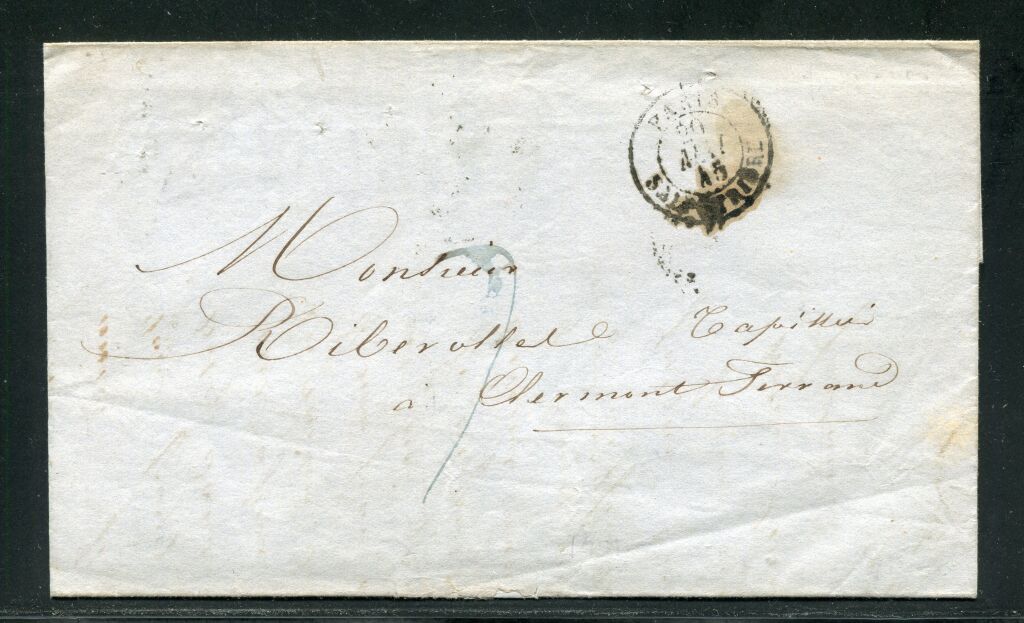 PARIS
20
45
Monsieur
Riberollet Tapissier
à Clermont Ferrand
7